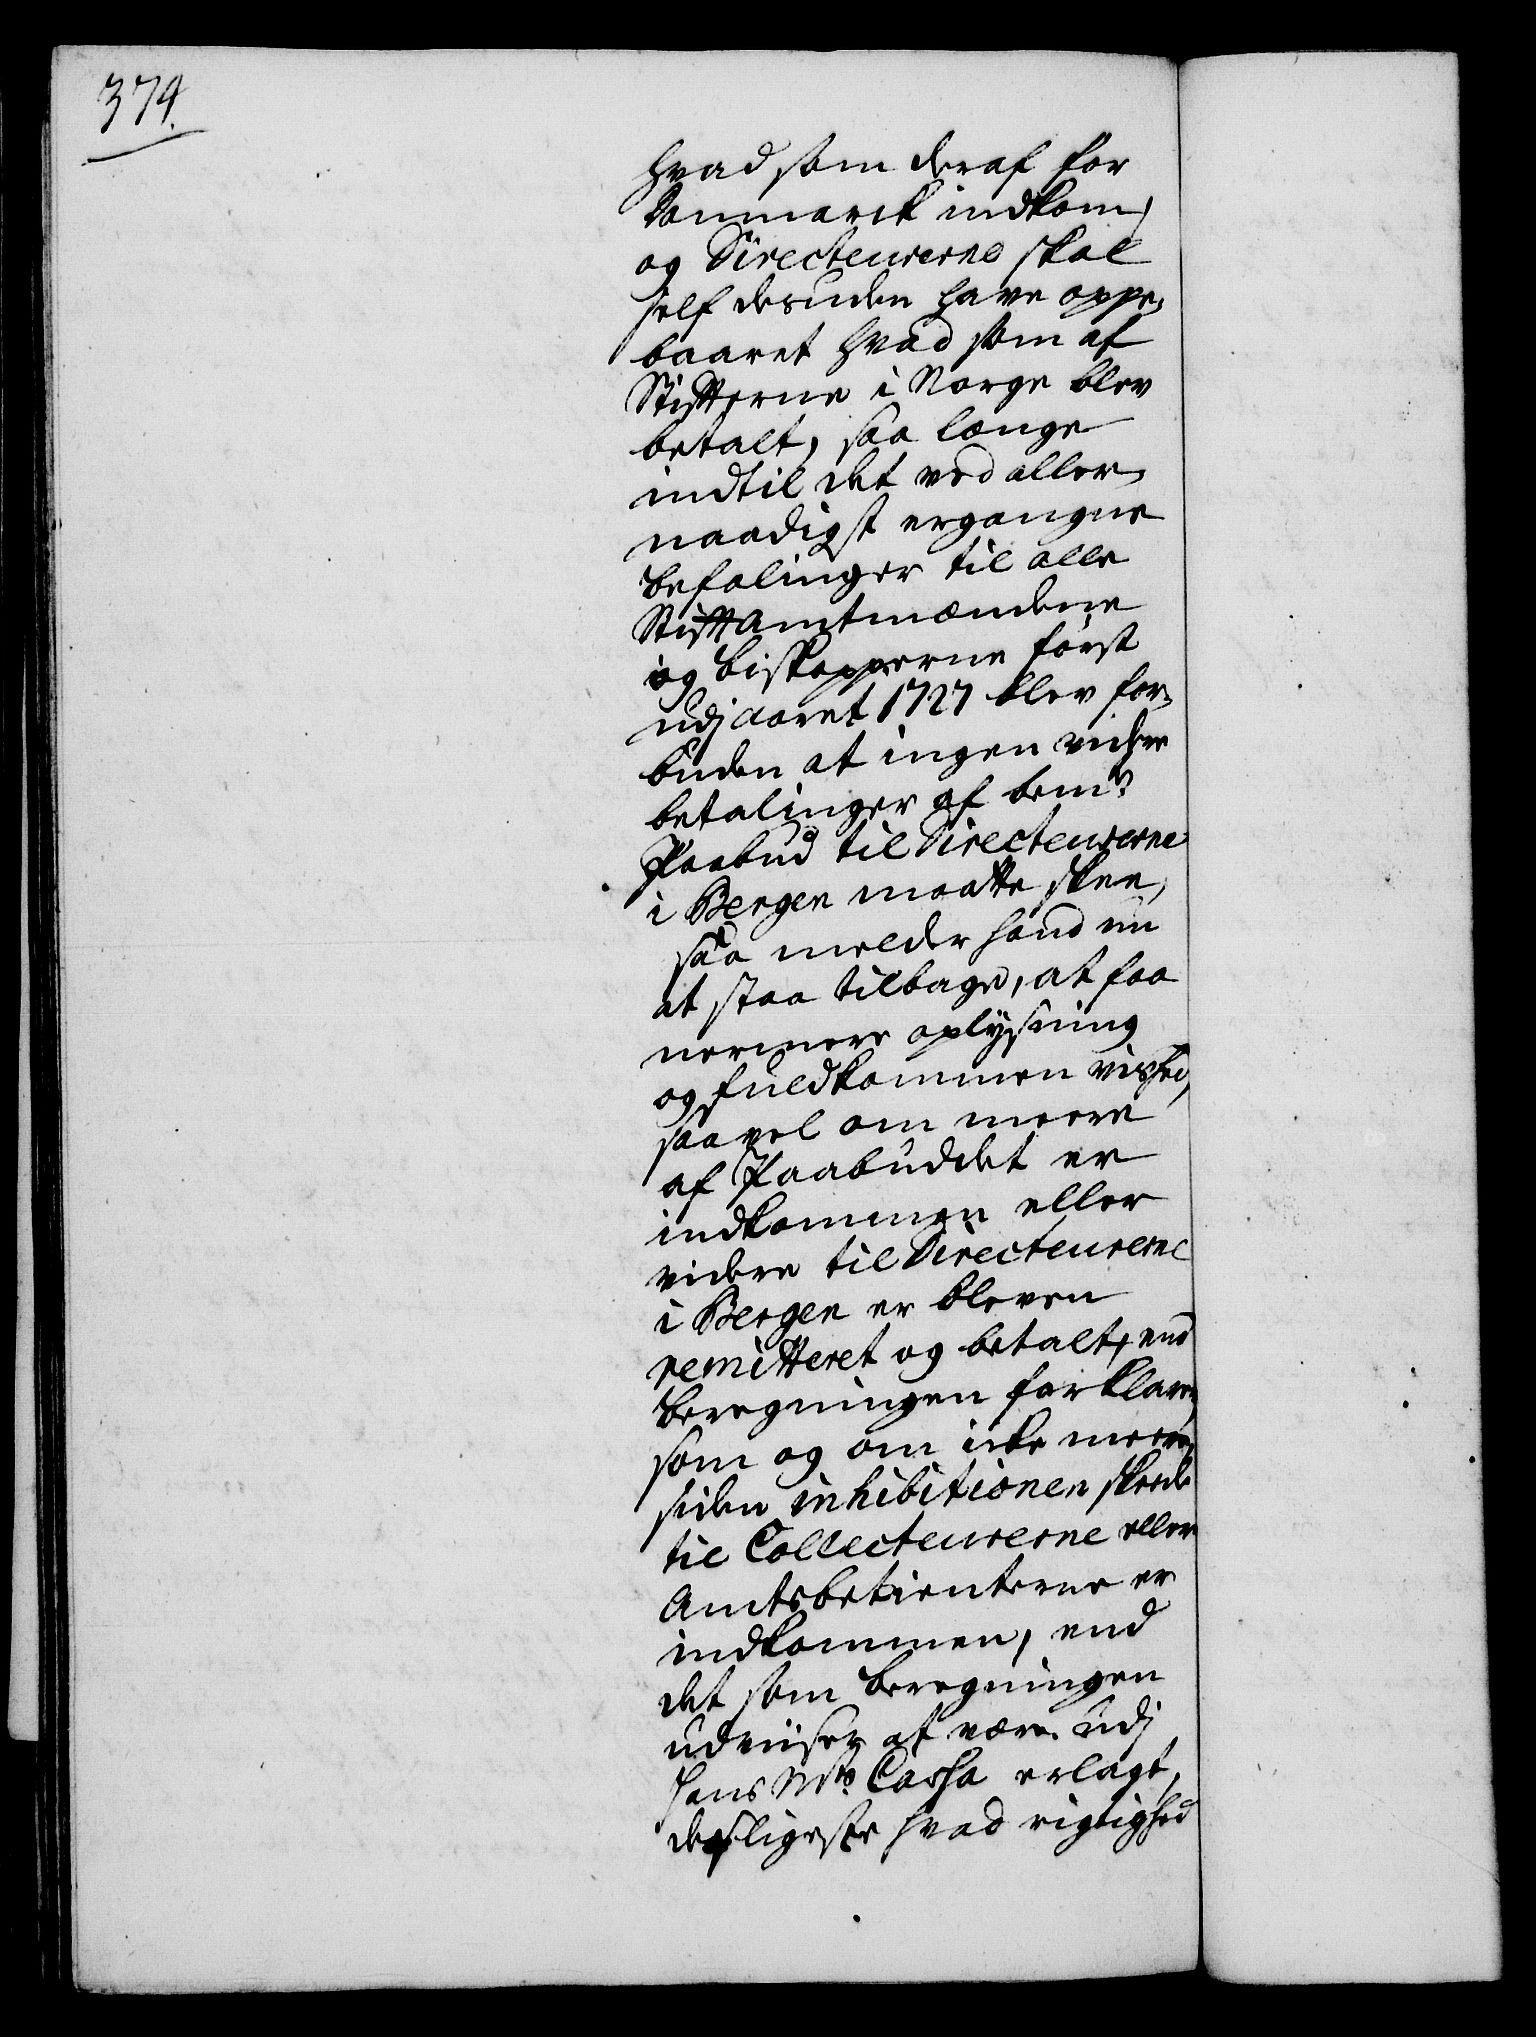 374.
hvad som deraf for
Danmarck indkom,
og Directeurerne skal
self desuden have oppe,
baaret hvad som af
Stifterne i Norge blev
betalt, saa længe
indtil det ved aller,
naadigst ergangne
befalinger til alle
Stiftamtmændene
og bisskopperne først
udj aaret 1727 blev for,
buden at ingen videre
betalinger af bemte
Paabud til Directeurerne
i Bergen maatte skee,
saa melder hand nu
at staa tilbage, at faa
nermere oplysning
og fuldkommen vished,
saavel om meere
af Paabuddet er
indkommen eller
videre til Directeurerne
i Bergen er bleven
remitteret og betalt, end
beregningen forklarer,
som og om icke meere,
siden inhibitionen skeede
til Collecteurerne eller
Amtsbetienterne er
indkommen, end
det som beregningen
udviiser at være udj
Hans Mts Cassa erlagt,
desligeste hvad rigtighed